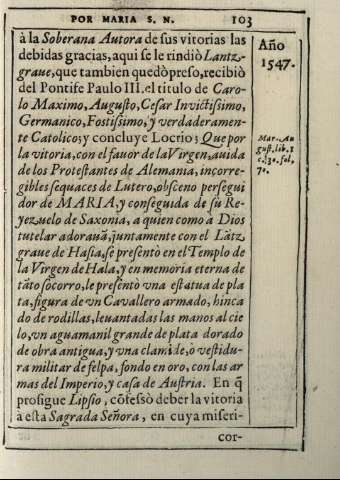 POR MARIA S. N. 103
à la Soberana Autora de sus vitorias las
debidas gracias, aqui se le rindiò Lantz-
graue, que tambien quedò preso, recibiò
del Pontife Paulo III. el titulo de Caro-
lo Maximo, Augusto, Cesar Invictissimo,
Germanico, Fostissimo, y verdaderamen-
te Catolico; y concluye Locrio; Que por
la vitoria, con el fauor de la Virgen, auida
de los Protestantes de Alemania, incorre-
gibles sequaces de Lutero, obsceno persegui
dor de MARIA, y conseguida de su Re-
yezuelo de Saxonia, a quien como à Dios
tutelar adorauã, juntamente con el Lãtz
graue de Hasia, se presentò en el Templo de
la Virgen de Hala, y en memoria eterna de
tãto socorro, le presentò una estatua de pla
ta, figura de vn Cavallero armado, hinca
do de rodillas, leuantadas las manos al cie
lo, vn aguamanil grande de plata dorado
de obra antigua, y vna clamide, ò vestidu-
ra militar de felpa, fondo en oro, con las ar
mas del Imperio, y casa de Austria. En q̃
prosigue Lipsio, cõfessò deber la vitoria
à esta Sagrada Señora, en cuya miseri-
cor-
Año
1547.
Mar. An
gust. lib. 1
c. 30. fol.
70.